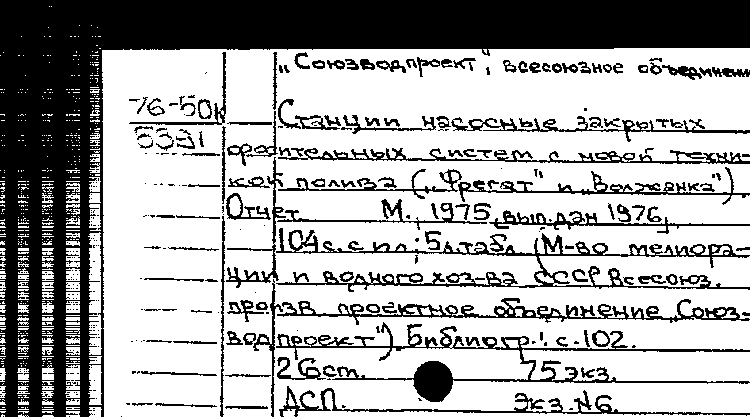 „Союзводпроект", всесоюзное объединени
76-50к
5391
Станции насосные закрытых
оросительных систем с новой техни-
кой полива („Фрегат" и „Волжанка").
Отчет. М., 1975, вып. дан 1976,
104 с. с ил; 5 л. табл. (М-во мелиора-
ции и водного хоз-ва СССР Всесоюз.
произв проектное объединение „Союз-
водпроект") Библиогр.: с. 102.
26 ст. 75 экз.
ДСП. Экз. №6.